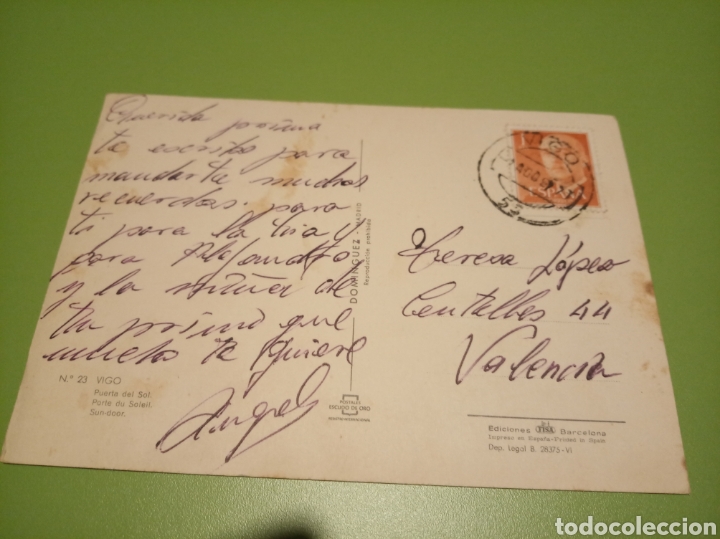 Querida prima
te escribo para
mandarte muchos
recuerdos. para
ti para la tia y
para Alejandro
y la niña de
tu primo que
mucho te quiere
Angel
Nº 23 VIGO
Puerta del Sol.
Porte du Soleil.
Sun-door.
DOMINGUEZ - MADRID
Reproducción prohibida
POSTALES
ESCUDO DE ORO
VIGO
Teresa López
Centelles 44
Valencia
Ediciones Barcelona
Impreso en España-Printed in Spain
Dep. Legal B. 26375-VI
todocoleccion